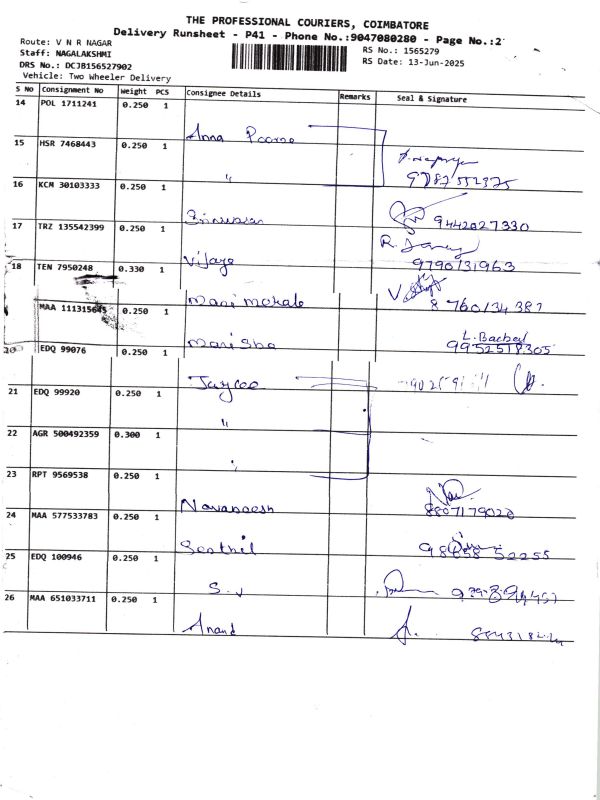 THE PROFESSIONAL COURIERS, COIMBATORE
Delivery Runsheet - P41 - Phone No.:9047080280 - Page No.:2
Route: V N R NAGAR
RS No.: 1565279
Staff: NAGALAKSHMI
RS Date: 13-Jun-2025
DRS No.: DCJB156527902
Vehicle: Two Wheeler Delivery
S No Consignment No Weight PCS Consignee Details Remarks Seal & Signature
14 POL 1711241 0.250 1
Anna Poorna
15 HSR 7468443 0.250 1
"
9787552375
16 KCM 30103333 0.250 1
Srinivasan 9442027330
17 TRZ 135542399 0.250 1
Vijaya 9790131963
18 TEN 7950248 0.330 1
Mani mekala 8760134387
MAA 111315645 0.250 1
Manisha L. 9952518305
20 EDQ 99076 0.250 1
Jaycee
21 EDQ 99920 0.250 1
"
22 AGR 500492359 0.300 1
"
23 RPT 9569538 0.250 1
Navaneesh 8807179020
24 MAA 577533783 0.250 1
Senthil 52255
25 EDQ 100946 0.250 1
S. V
26 MAA 651033711 0.250 1
Anand